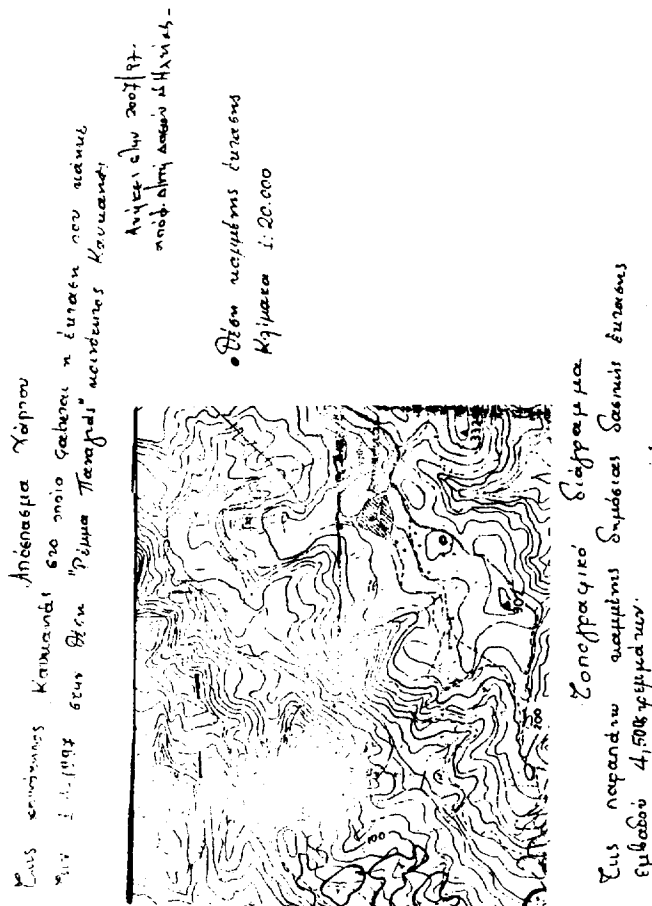 Απόσπασμα Χάρτου
της κοινότητος Καυκανιάς στο οποίο φαίνεται η έκταση που κάηκε
την 1997 στην θέση "Ρέμμα Παναγιάς" κοινότητος Καυκανιάς
Ανήκει στην 2007/97
αποφ. Δ/νσης Δασών Ν. Ηλείας.
• Θέση καμμένης έκτασης
Κλίμακα 1:20.000
200
100
Τοπογραφικό διάγραμμα
Της παραπάνω καμμένης δημόσιας δασικής έκτασης
εμβαδού 4,500 στρεμμάτων.